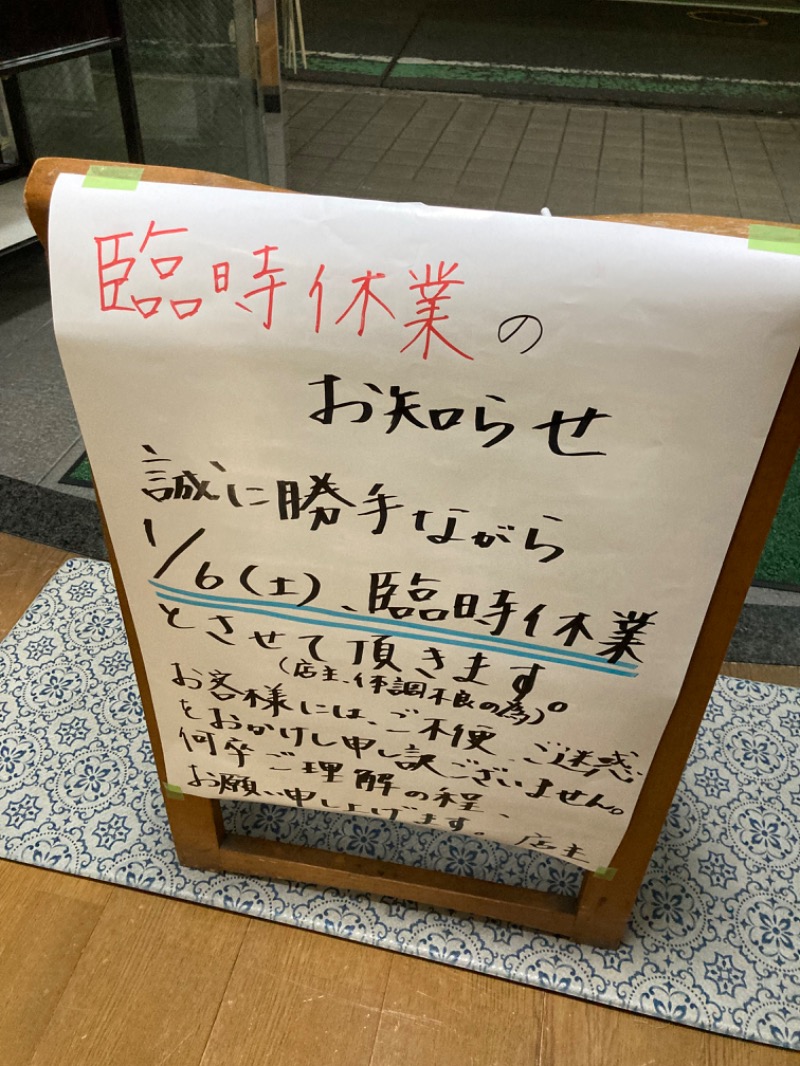 臨時休業の
お知らせ
誠に勝手ながら
1/6(土)、臨時休業
とさせて頂きます。
(店主、体調不良の為)
お客様には、ご不便、ご迷惑
をおかけし申し訳ございません。
何卒ご理解の程、
お願い申し上げます。店主